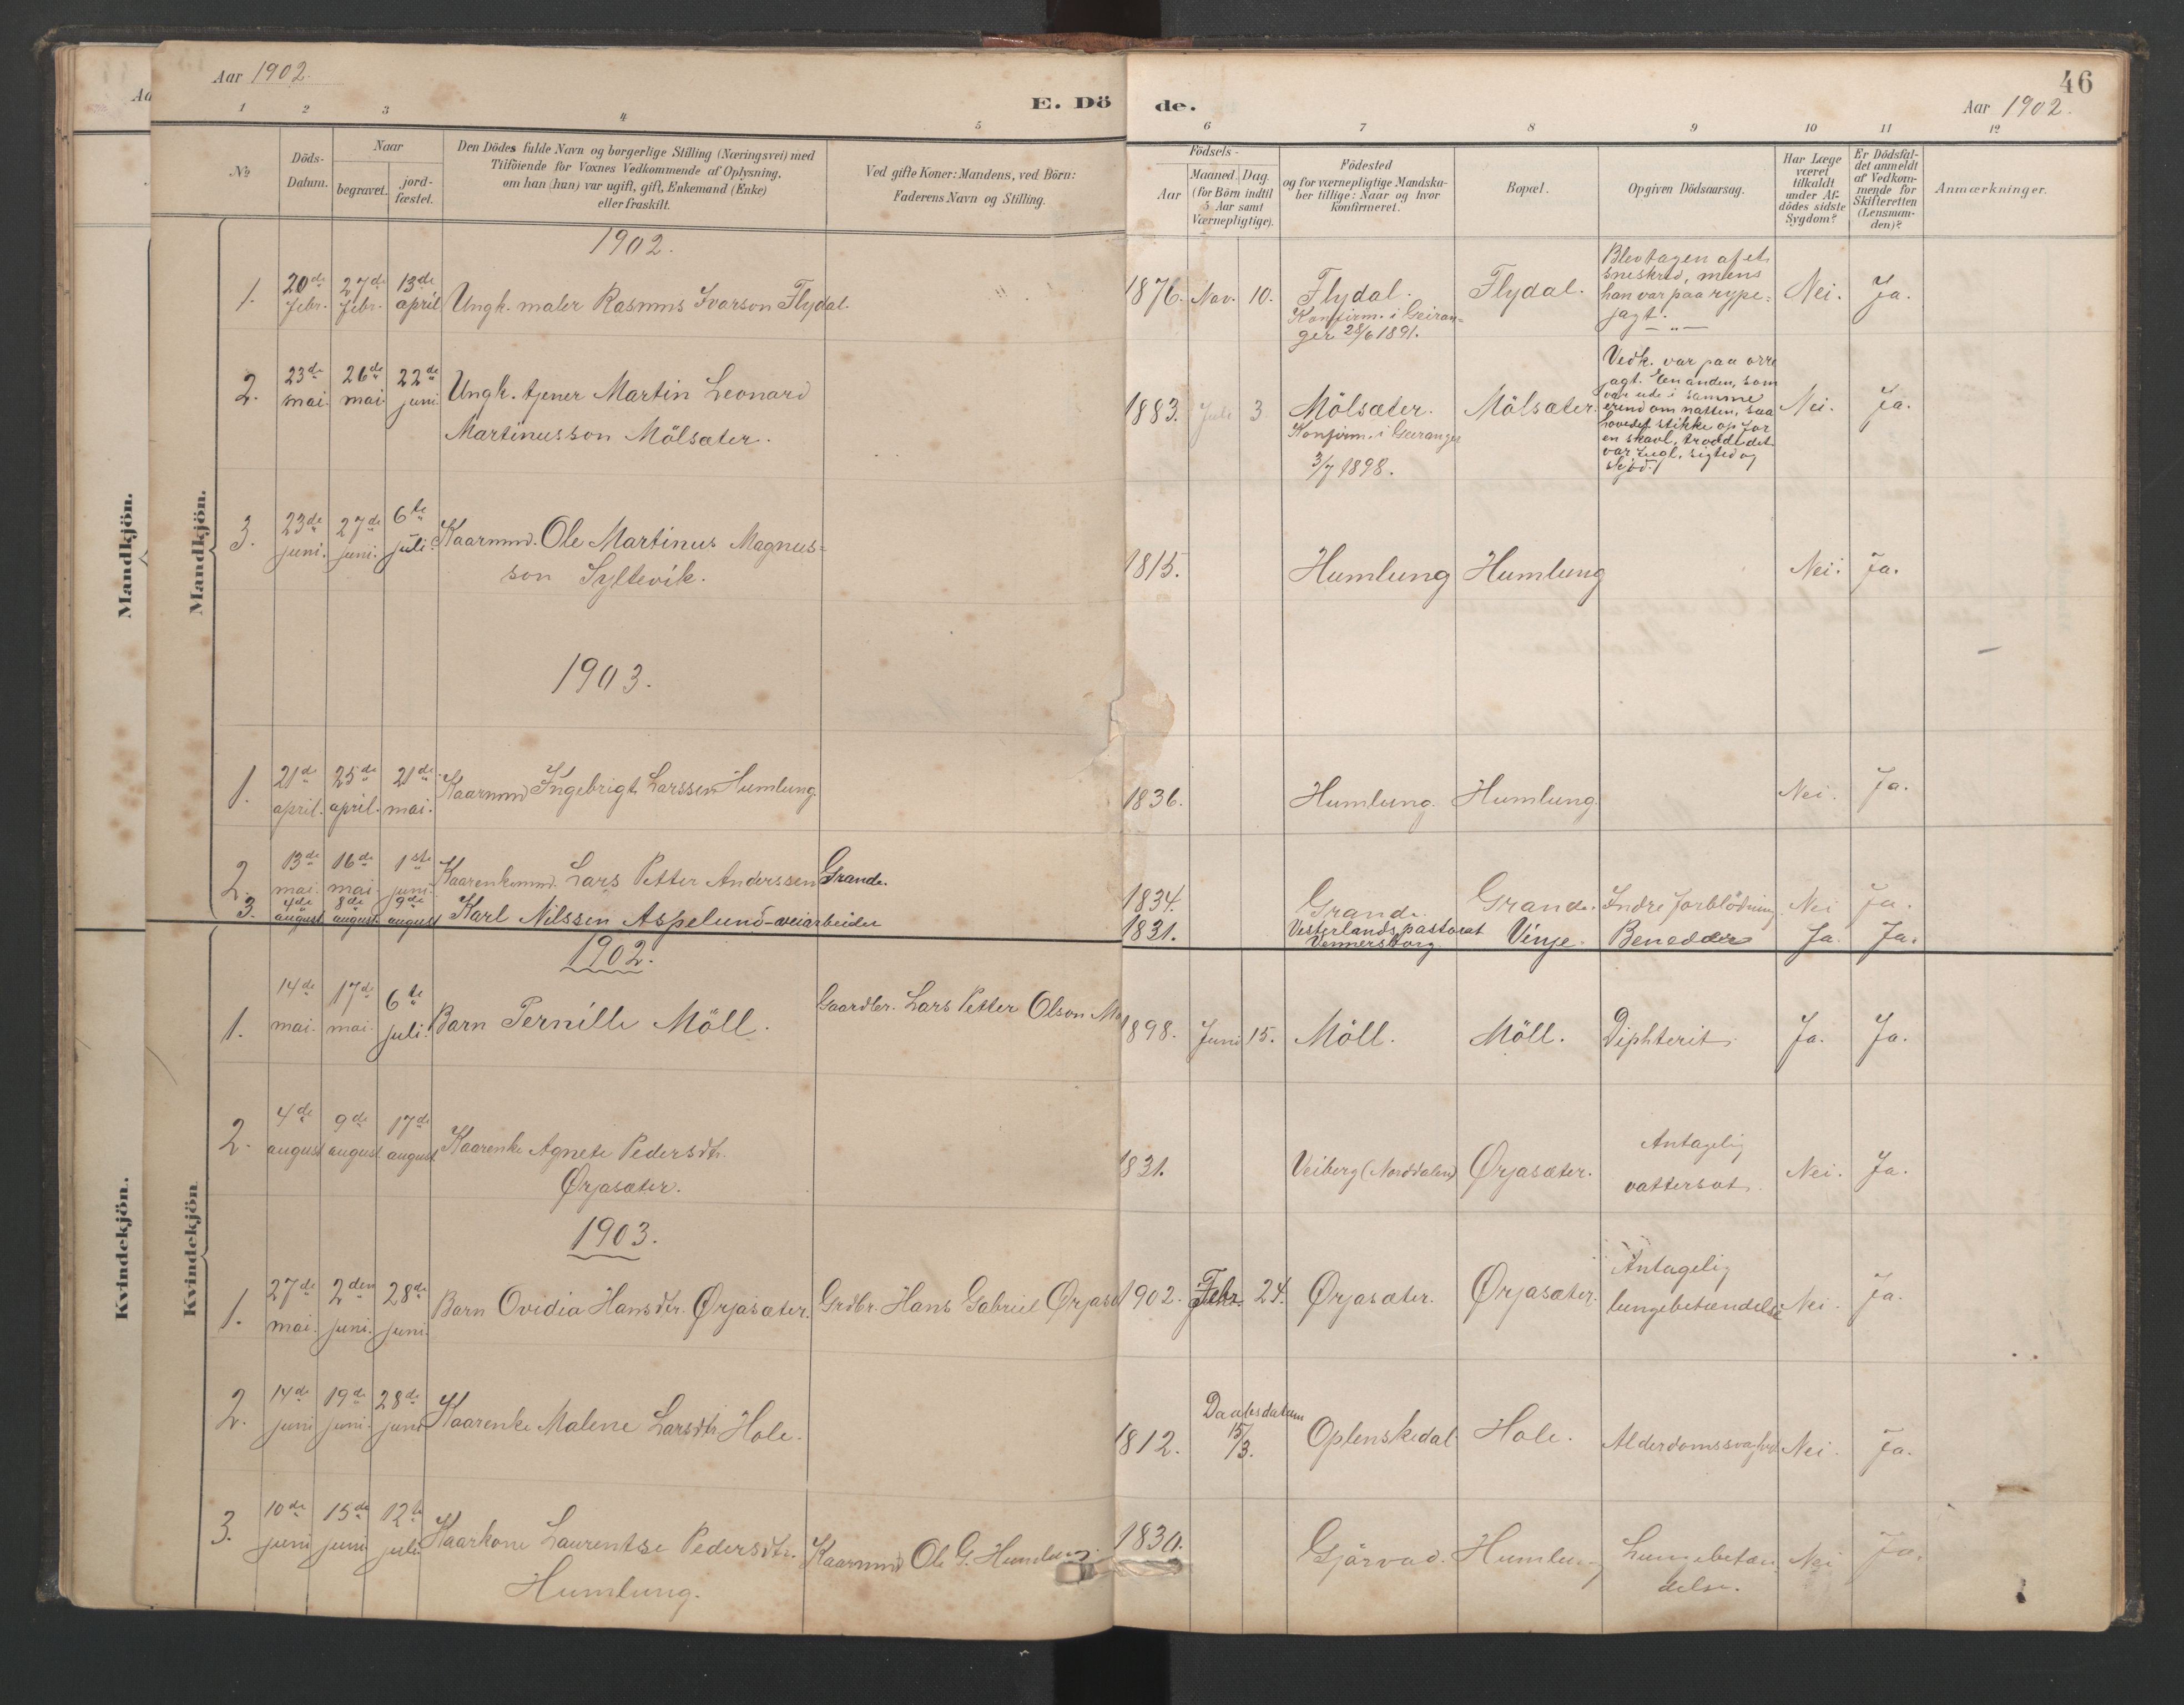 Aar 1902.
E. Dö de.
46
Aar 1902.
1 2 3 4 5 6 7 8 9 10 11 12
No
Döds-
Datum.
Naar
begravet.
jord-
fæstet.
Den Dödes fulde Navn og borgerlige Stilling (Næringsvei) med
Tilföiende for Voxnes Vedkommende af Oplysning,
om han (hun) var ugift, gift, Enkemand (Enke)
eller fraskilt.
Ved gifte Koner: Mandens, ved Börn:
Faderens Navn og Stilling.
Födsels-
Aar
Maaned. Dag.
(for Börn indtil
5 Aar samt
Værnepligtige).
Födested
og for værnepligtige Mandska-
ber tillige: Naar og hvor
konfirmeret.
Bopæl.
Opgiven Dödsaarsag.
Har Læge
været
tilkaldt
under Af-
dödes sidste
Sygdom?
Er Dödsfal-
det anmeldt
af Vedkom-
mende for
Skifteretten
(Lensman-
den)?
Anmærkninger.
Mandkjön.
Mandkjön.
1902.
1.
20de
febr.
27de
febr.
13de
april
Ungk. maler Rasmus Ivarson Flydal.
1876. Nov. 10.
Flydal.
Konfirm. i Geiran=
ger 28/6 1891.
Flydal.
Blev tagen af et
sneskred, mens
han var paa rype=
jagt.
— " —
Nei. Ja.
2.
23de
mai.
26de
mai.
22de
juni.
Ungk. tjener Martin Leonard
Martinusson Mölsæter.
1883. Juli 3.
Mölsæter.
Konfirm. i Geiranger
3/7 1898.
Mölsæter.
Vedk. var paa orre
jagt. En anden, som
var ude i samme
erend om natten, saa
hovedet stikke op for
en skavl, troede det
var fugl, sigted og
skjöd.
Nei. Ja.
3.
23de
juni.
27de
juni.
6te
juli.
Kaarmnd. Ole Martinus Magnus=
son Syltevik.
1815.
Humlung Humlung
Nei. Ja.
1903.
1.
21de
april.
25de
april.
21de
mai.
Kaarmnd Ingebrigt Larssen Humlung.
1836.
Humlung. Humlung.
Nei. Ja.
2.
13de
mai.
16de
mai.
1ste
juni.
Kaarenkemnd. Lars Petter Anderssen Grande.
1834.
Grande. Grande. Indre forblödning Nei Ja.
3.
4de
august
8de
august
9de
august
Karl Nilssen Aspelund - veiarbeider
1831.
Vesterlands pastorat
Vennersborg
Vinje. Benedder Ja. Ja.
Kvindekjön.
Kvindekjön
1902.
1.
14de
mai.
17de
mai.
6te
juli.
Barn Pernille Möll.
Gaardbr. Lars Petter Olson Mö
1898. Juni 15.
Möll. Möll. Diphterit. Ja. Ja.
2.
4de
august
9de
august
17de
august
Kaarenke Agnete Pedersdtr.
Ørjasæter.
1831.
Veiberg (Norddalen) Ørjasæter.
Antagelig
vattersot.
Nei. Ja.
1903.
1.
27de
mai.
2den
juni.
28de
juni.
Barn Ovidia Hansdtr. Ørjasæter.
Grdbr. Hans Gabriel Ørjasæ
1902. Febr. 24.
Ørjasæter. Ørjasæter.
Antagelig
lungebetændelse
Nei. Ja.
2.
14de
juni
19de
juni.
28de
juni
Kaarenke Malene Larsdtr. Hole.
1812.
Daabsdatum
15/3.
Oplenskedal. Hole. Alderdomssvaghed Nei. Ja.
3.
10de
juni
15de
juni
12te
juli
Kaarkone Laurentse Pedersdtr.
Humlung.
Kaarmnd Ole G. Humlung.
1830.
Gjörvad. Humlung
Lungebetæn
delse.
Nei Ja.